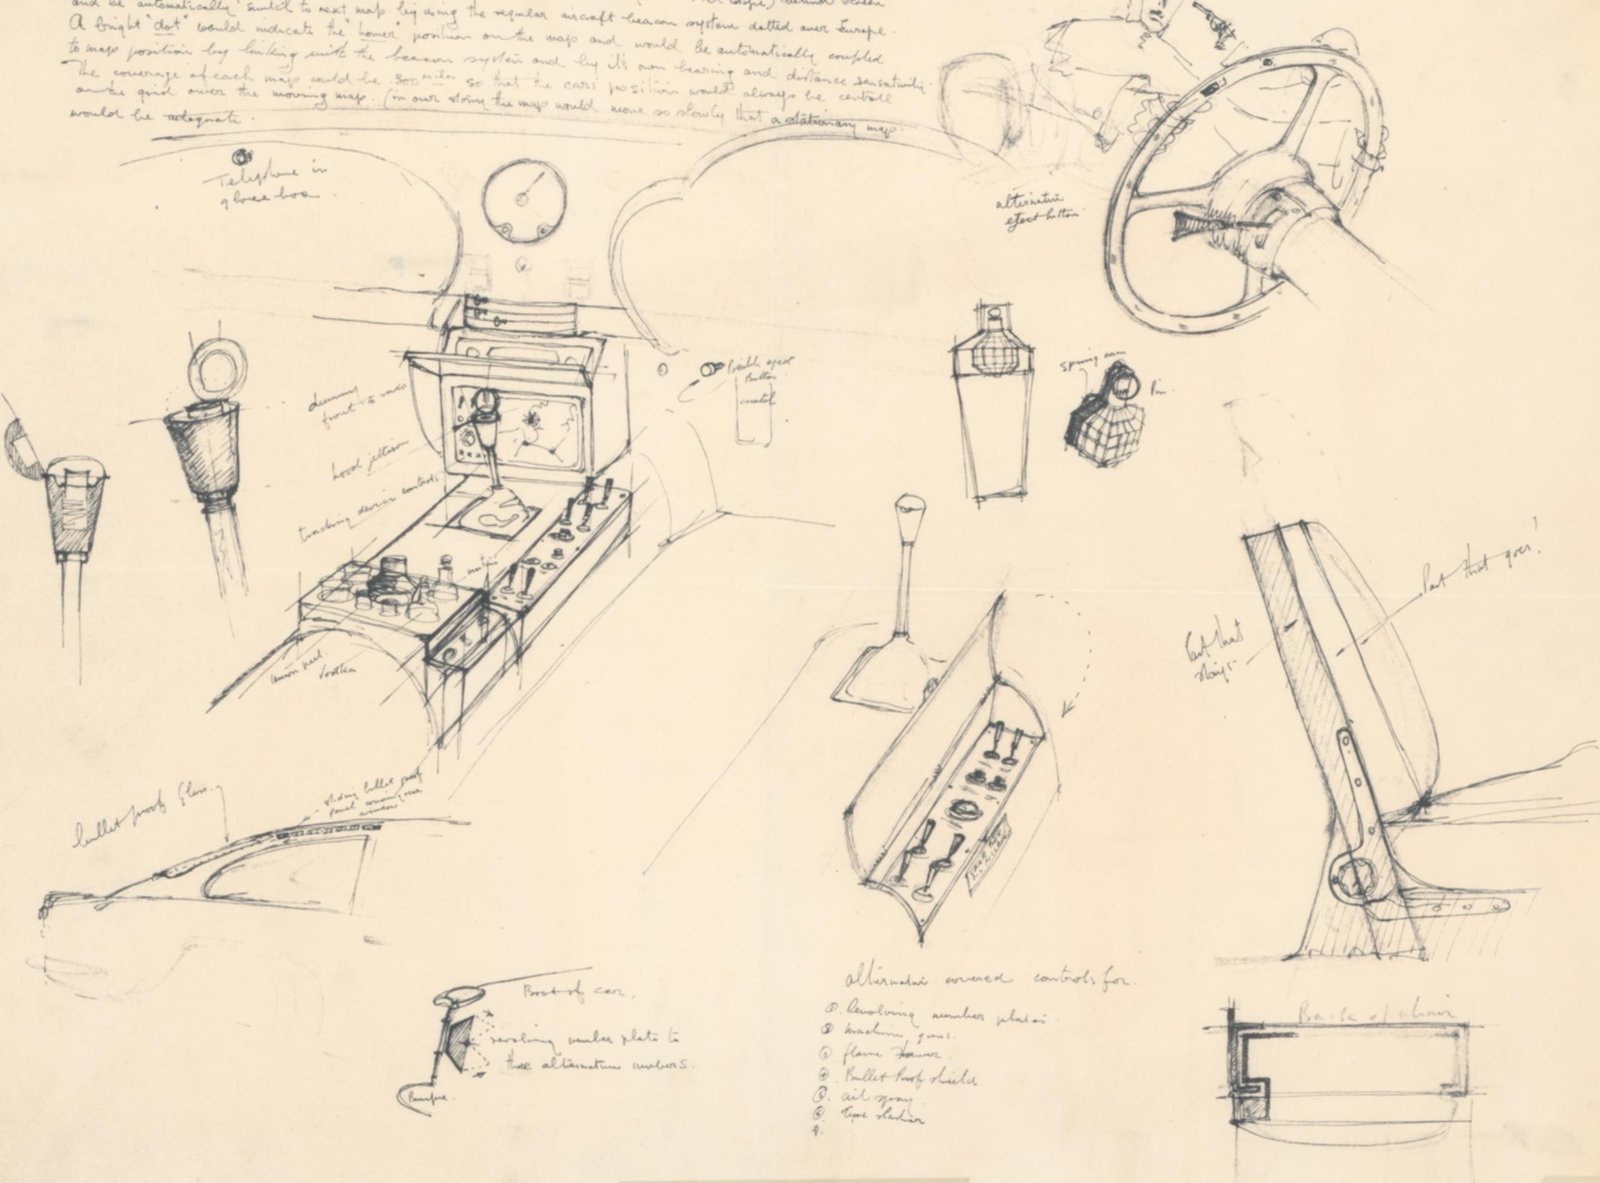 and be automatically switch to next map by using the regular aircraft beacon system dotted over Europe.
A bright "dot" would indicate the "homer" position on the map and would be automatically coupled
to map position by linking with the beacon system and by it's own bearing and distance sensativity.
The coverage of each map could be 300 miles so that the cars position would always be centrall
on the grid over the moving map. (in our story the map would move so slowly that a stationary map
would be adequate.
Telephone in
glove box
alternative
eject button
Possible eject
Button
control
spring arm
Pin
dummy
front to radio
hood
tracking device controls
bullet proof Glass
sliding bullet proof
panel covering rear
window
Part that goes!
Part that
stays
Boot of car.
revolving number plate to
three alternative numbers.
Bumper.
alternative covered controls for.
① Revolving number plates
② machine guns.
③ flame thrower.
④ Bullet Proof shield
⑤ oil spray
⑥ Tyre slasher
7.
Back of chair